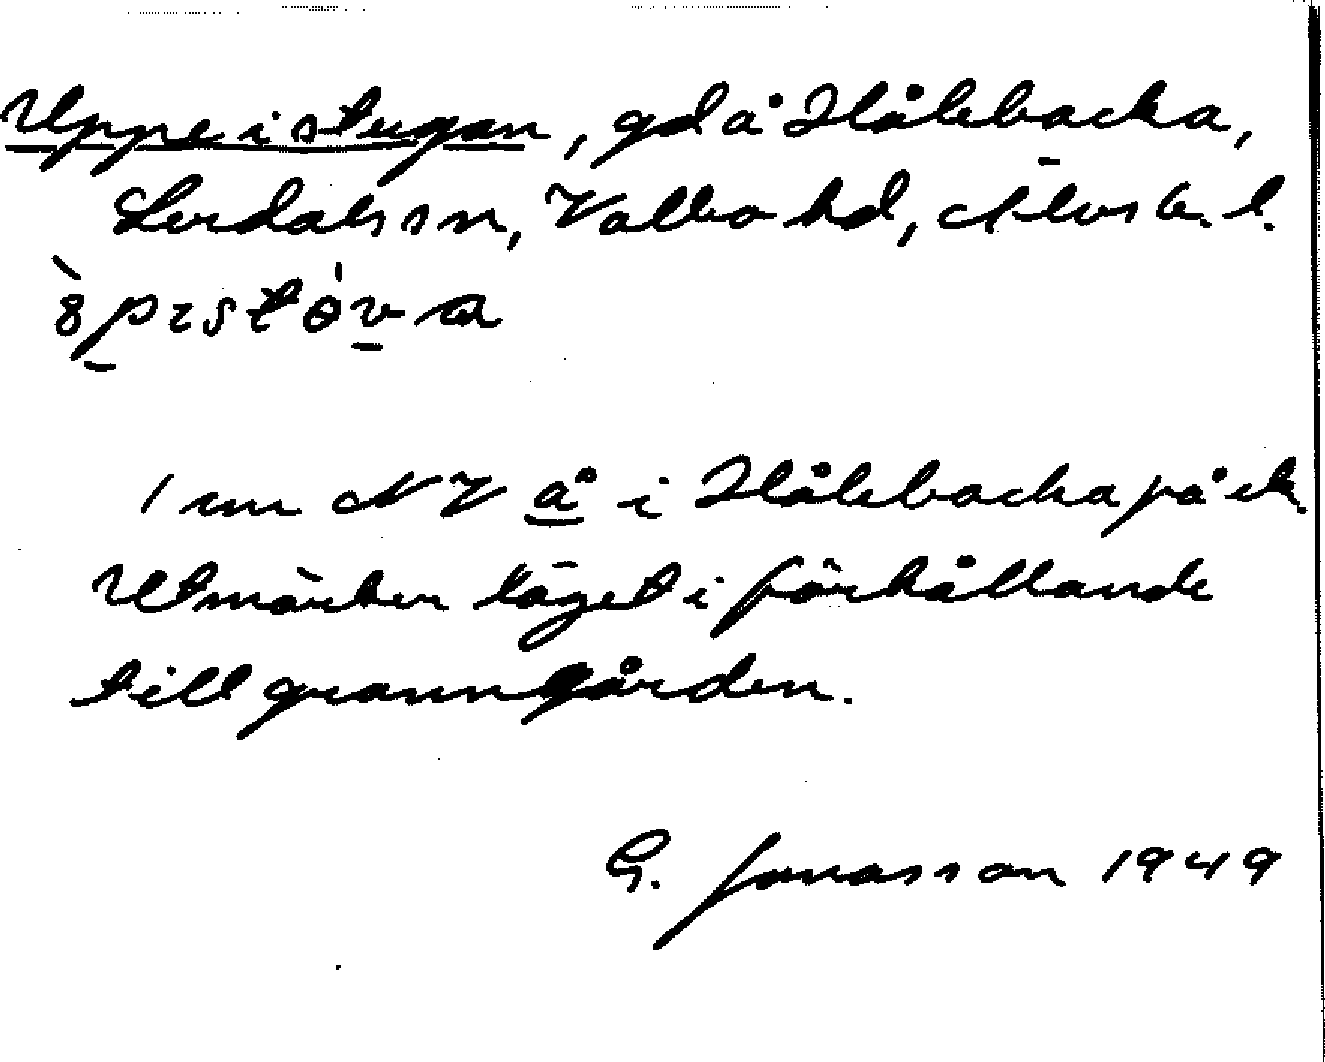 Uppe i stugan, gd å Hålebacka,
Lerdals sn, Valbo hd, Älvsb. l.
1 mm NV å i Hålebacka på ek.
Utmärker läget i förhållande
till granngården.
G. Jonasson 1949